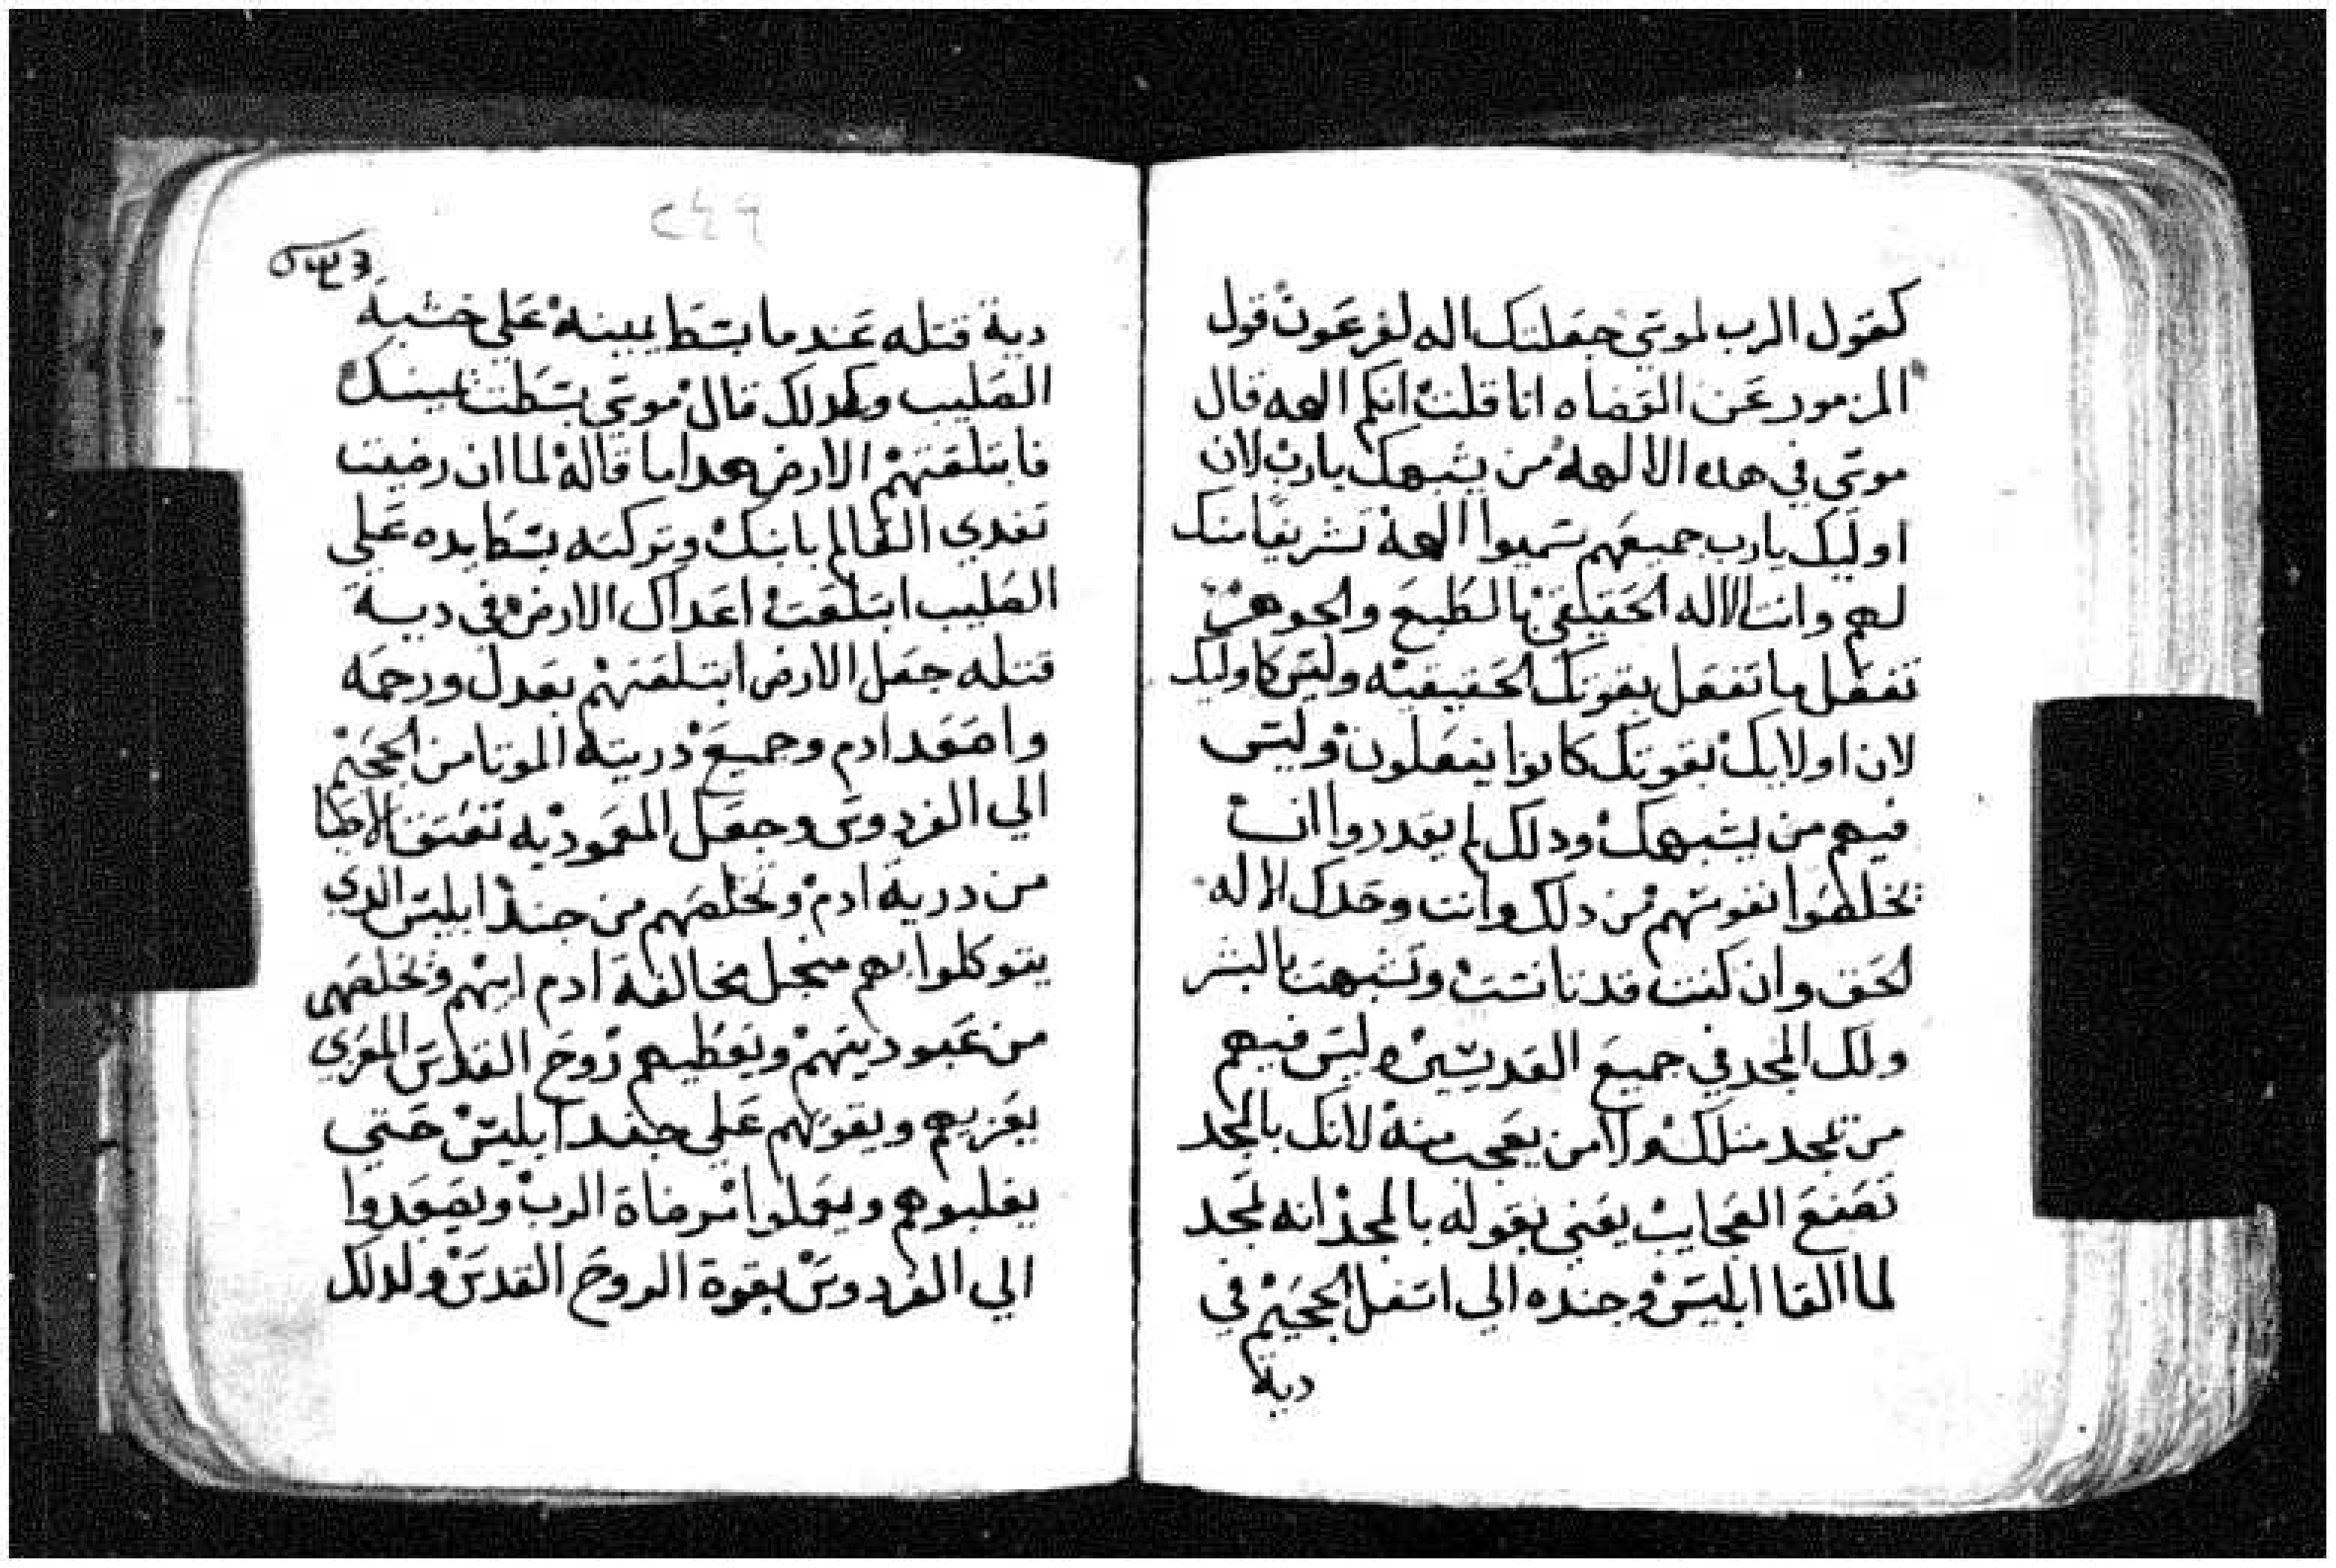 كقول الرب لموسي جعلتك اله لفرعون قول
المزمور عن القضاه انا قلت انكم الهه قال
موسي في هده الالهه من يشبهك يارب لان
اوليك يارب جميعهم سميوا الهة تشريفا منك
لهم وانت الاله الحقيقي بالطبع والجوهر
تفعل ما تفعل بقوتك الحقيقيه وليس كاوليك
لان اولايك بقوتك كانوا يفعلون وليس
فيهم من يشبهك ودلك لم يقدروا ان
يخلصوا نفوسهم من دلك وانت وحدك الاله
الحق وان كنت قد تانست وتشبهت بالبشر
ولك المجد في جميع القديسين وليس فيهم
من تمجد متلك ولا من يعجب منه لانك بالمجد
تصنع العجايب يعني بقوله بالمجد انه تمجد
لما القا ابليس وجنده الي اسفل الجحيم في
دية
٢٤٩
دية قتله عندما بسط يمينه علي خشبة
الصليب وكدلك قال موسي بسطت يمينك
فابتلعتهم الارض هدا ما قاله لما ان رضيت
تفدي العالم بابنك وتركته بسط يده علي
الصليب ابتلعت اعداك الارض في دية
قتله جعل الارض ابتلعتهم بعدل ورحمه
واصعد ادم وجميع دريته الموتا من الجحيم
الي الفردوس وجعل المعموديه تعتق الاطفال
من درية ادم وتخلصهم من جند ابليس الدي
يتوكلوا بهم منجل مخالفة ادم ابيهم وتخلصهم
من عبوديتهم ويعطيهم روح القدس المعزي
يعزيهم ويقويهم علي جند ابليس حتي
يغلبوهم ويعملوا مرضاة الرب ويصعدوا
الي الفردوس بقوة الروح القدس ولدلك